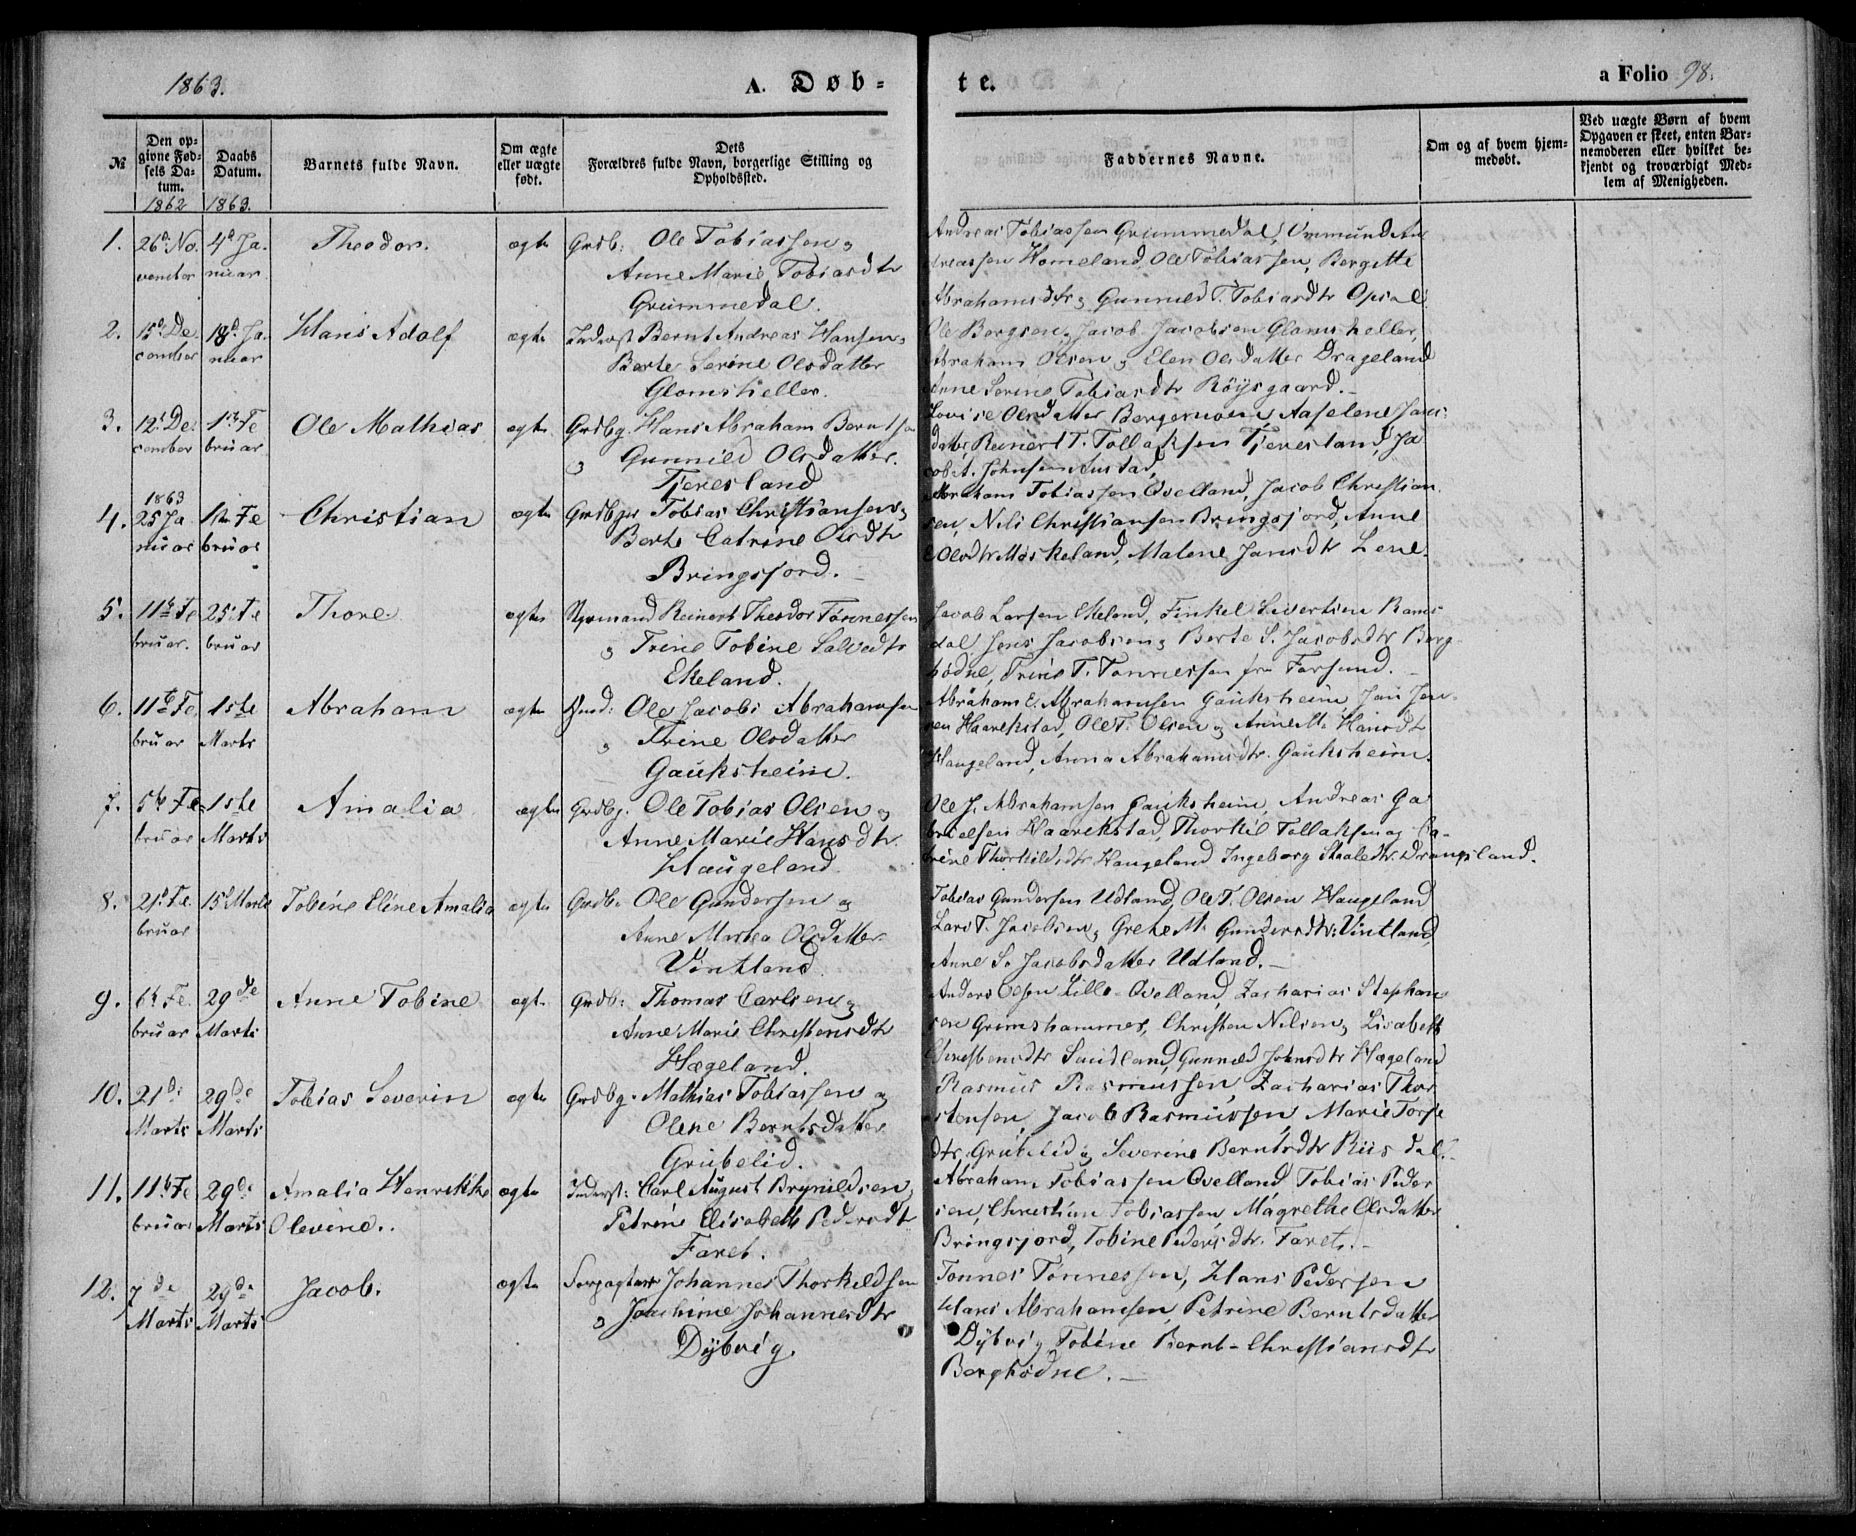 1863.
A. Døb-
te.
a Folio 98.
№
Den op-
givne Fød-
sels Da-
tum.
1862
Daabs
Datum.
1863.
Barnets fulde Navn.
Om ægte
eller uægte
født.
Dets
Forældres fulde Navn, borgerlige Stilling og
Opholdssted.
Faddernes Navne.
Om og af hvem hjem-
medøbt.
Ved uægte Børn af hvem
Opgaven er skeet, enten Bar-
nemoderen eller hvilket be-
kjendt og troværdigt Med-
lem af Menigheden.
1.
26d. No.
vember
4d Ja.
nuar.
Theodor.
ægte
Grdb. Ole Tobiassen og
Anne Marie Tobiasdtr
Grummedal.
Andreas Tobiassen Grummedal, Ommund An
dreassen Homeland, Ole Tobiassen, Bergitte
Abrahamsdtr og Gunnild T. Tobiasdtr Opsal
2.
15d De
cember
18d. Ja.
nuar
Hans Adolf
ægte
Inderst Bernt Andreas Hansen og
Berte Serine Olsdatter
Glomsheller.
Ole Borgsen, Jacob Jacobsen Glomsheller,
Abraham Olsen og Elen Olsdatter Drageland
Anne Serine Tobiasdtr Röysgaard.
3.
12t. De.
cember
1ste Fe
bruar
Ole Mathias
ægte
Grdbg. Hans Abraham Berntsen
og Gunnild Olsdatter.
Tjeresland
Lovise Olsdatter Aaselene Jans
datter, Reinert T. Tollaksen Tjeresland, Ja
cob A. Johnsen Austad,
4.
1863
25 Ja
nuar
1ste Fe
bruar
Christian
ægte
Grdbgr Tobias Christiansen og
Berte Catrine Olsdtr
Bringsjord.
Abraham Tobiassen Qvelland, Jacob Christian
sen, Nils Christiansen Bringsjord, Anne
E. Olsdtr Møskeland, Malene Jansdtr Lene.
5.
11te Fe
bruar.
25. Fe
bruar
Thore.
ægte
Reinert Theodor Tønnessen
og Trine Tobine Salvesdtr
Ekeland.
Jacob Larsen Ekeland, Finkel Sivertsen Rams
dal, Jens Jacobsen og Berte S. Jacobsdtr Borg
hødne, Trine T. Tønnessen fra Farsund.
6.
11te Fe
bruar
1ste
Marts
Abraham
ægte
Ole Jacob Abrahamsen
og Trine Olsdatter
Gauksheim.
Abraham E. Abrahamsen Gauksheim, Jan Jen
sen Haarikstad, Ole T. Olsen og Anne M. Hansdtr
Haugeland, Anna Abrahamsdtr. Gauksheim.
7.
5te Fe
bruar
1ste
Marts
Amalia
ægte
Grdbg. Ole Tobias Olsen og
Anne Marie Hansdtr.
Haugeland.
Ole J. Abrahamsen Gauksheim, Andreas Ga
brielsen Haarikstad, Thorkil Tollaksen og Ca-
trine Thorkildsdtr Haugeland, Ingeborg Staaledtr. Drangsland.
8.
21d. Fe
bruar
15d Marts
Tobine Eline Amalia
ægte
Grdb. Ole Gundersen og
Anne Marthea Olsdatter
Vintland.
Tobias Gundersen Udland, Ole T. Olsen Haugeland
Lars T. Jacobsen og Grethe M. Gundersdtr. Vintland,
Anne S. Jacobsdatter Udland.
9.
6te Fe.
bruar
29de
Marts
Anne Tobine
ægte
Grdb. Thomas Carlsen og
Anne Marie Christensdtr
Hægeland.
Anders Olsen Lille-Qvelland, Zacharias Stephan
sen Grimshammer, Christen Nilsen og Lisabeth
Christensdtr Saudland, Gunnild Johnsdtr Hægeland
10.
21de
Marts
29de
Marts
Tobias Severin
ægte
Grdbg. Mathias Tobiassen og
Olene Berntsdatter
Grubelid.
Rasmus Rasmussen, Zacharias Thor
stensen, Jacob Rasmussen, Marie Torje
dtr. Grubelid og Severine Berntsdtr Riisdal.
11.
11te Fe
bruar
29de
Marts
Amalia Henrikke
Olevine.
ægte
Inderst: Carl August Brynildsen og
Petrine Elisabeth Pedersdtr
Faret.
Abraham Tobiassen Qvelland, Tobias Peder
sen, Christian Tobiassen, Magrethe Olsdatter
Bringsjord, Tobine Pedersdtr. Faret.
12.
7de
Marts
29de
Marts
Jacob.
ægte
Johannes Thorkildsen
og Jonehine Johannesdtr
Dybvig.
Tønnes Tønnessen, Hans Pedersen
Hans Abrahamsen, Petrine Berntsdatter
Dybvig, Tobine Bernt-Christiansdtr
Borghødne.